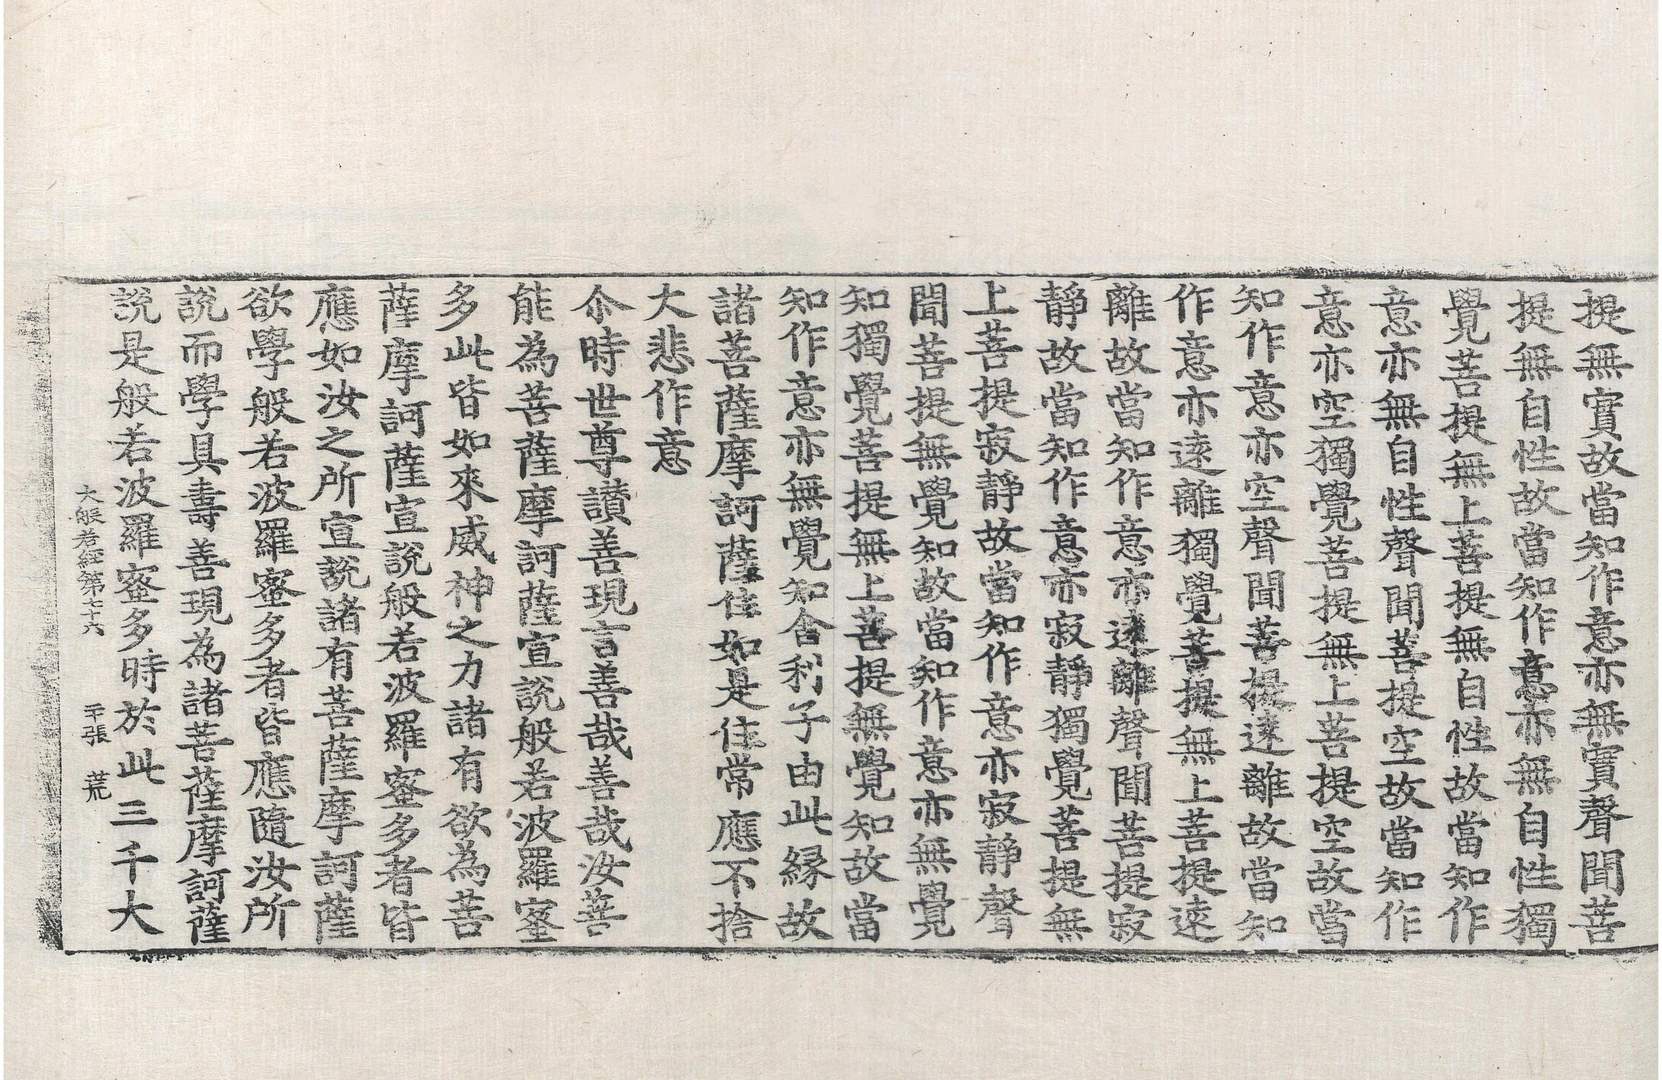 提無實故當知作意亦無實聲聞菩
提無自性故當知作意亦無自性獨
覺菩提無上菩提無自性故當知作
意亦無自性聲聞菩提空故當知作
意亦空獨覺菩提無上菩提空故當
知作意亦空聲聞菩提遠離故當知
作意亦遠離獨覺菩提無上菩提遠
離故當知作意亦遠離聲聞菩提寂
靜故當知作意亦寂靜獨覺菩提無
上菩提寂靜故當知作意亦寂靜聲
聞菩提無覺知故當知作意亦無覺
知獨覺菩提無上菩提無覺知故當
知作意亦無覺知舍利子由此緣故
諸菩薩摩訶薩住如是住常應不捨
大悲作意
尒時世尊讃善現言善哉善哉汝善
能為菩薩摩訶薩宣說般若波羅蜜
多此皆如來威神之力諸有欲為菩
薩摩訶薩宣說般若波羅蜜多者皆
應如汝之所宣說諸有菩薩摩訶薩
欲學般若波羅蜜多者皆應隨汝所
說而學具壽善現為諸菩薩摩訶薩
說是般若波羅蜜多時於此三千大
大般若經第七十六 張 荒